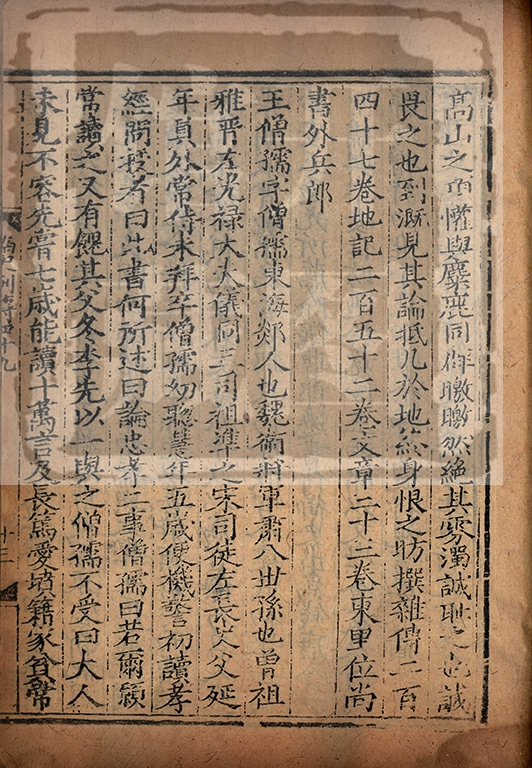 高山之頂懽與麋鹿同群皦皦然絕其雰濁誠耻之也誠
畏之也到漑見其論抵几於地終身恨之昉撰雜傳二百
四十七卷地記二百五十二卷文章三十三卷東里位尚
書外兵郎
王僧孺字僧孺東海郯人也魏衞將軍肅八世孫也曾祖
雅晋左光禄大夫儀同三司祖凖之宋司徒左長史父延
年員外常侍未拜卒僧孺幼聰慧年五歲便機警初讀孝
經問授者曰此書何所述曰論忠孝二事僧孺曰若爾願
常讀之又有餽其父冬李先以一與之僧孺不受曰大人
未見不容先嘗七歲能讀十萬言及長篤愛墳籍家貧常
列傳四十九
十三